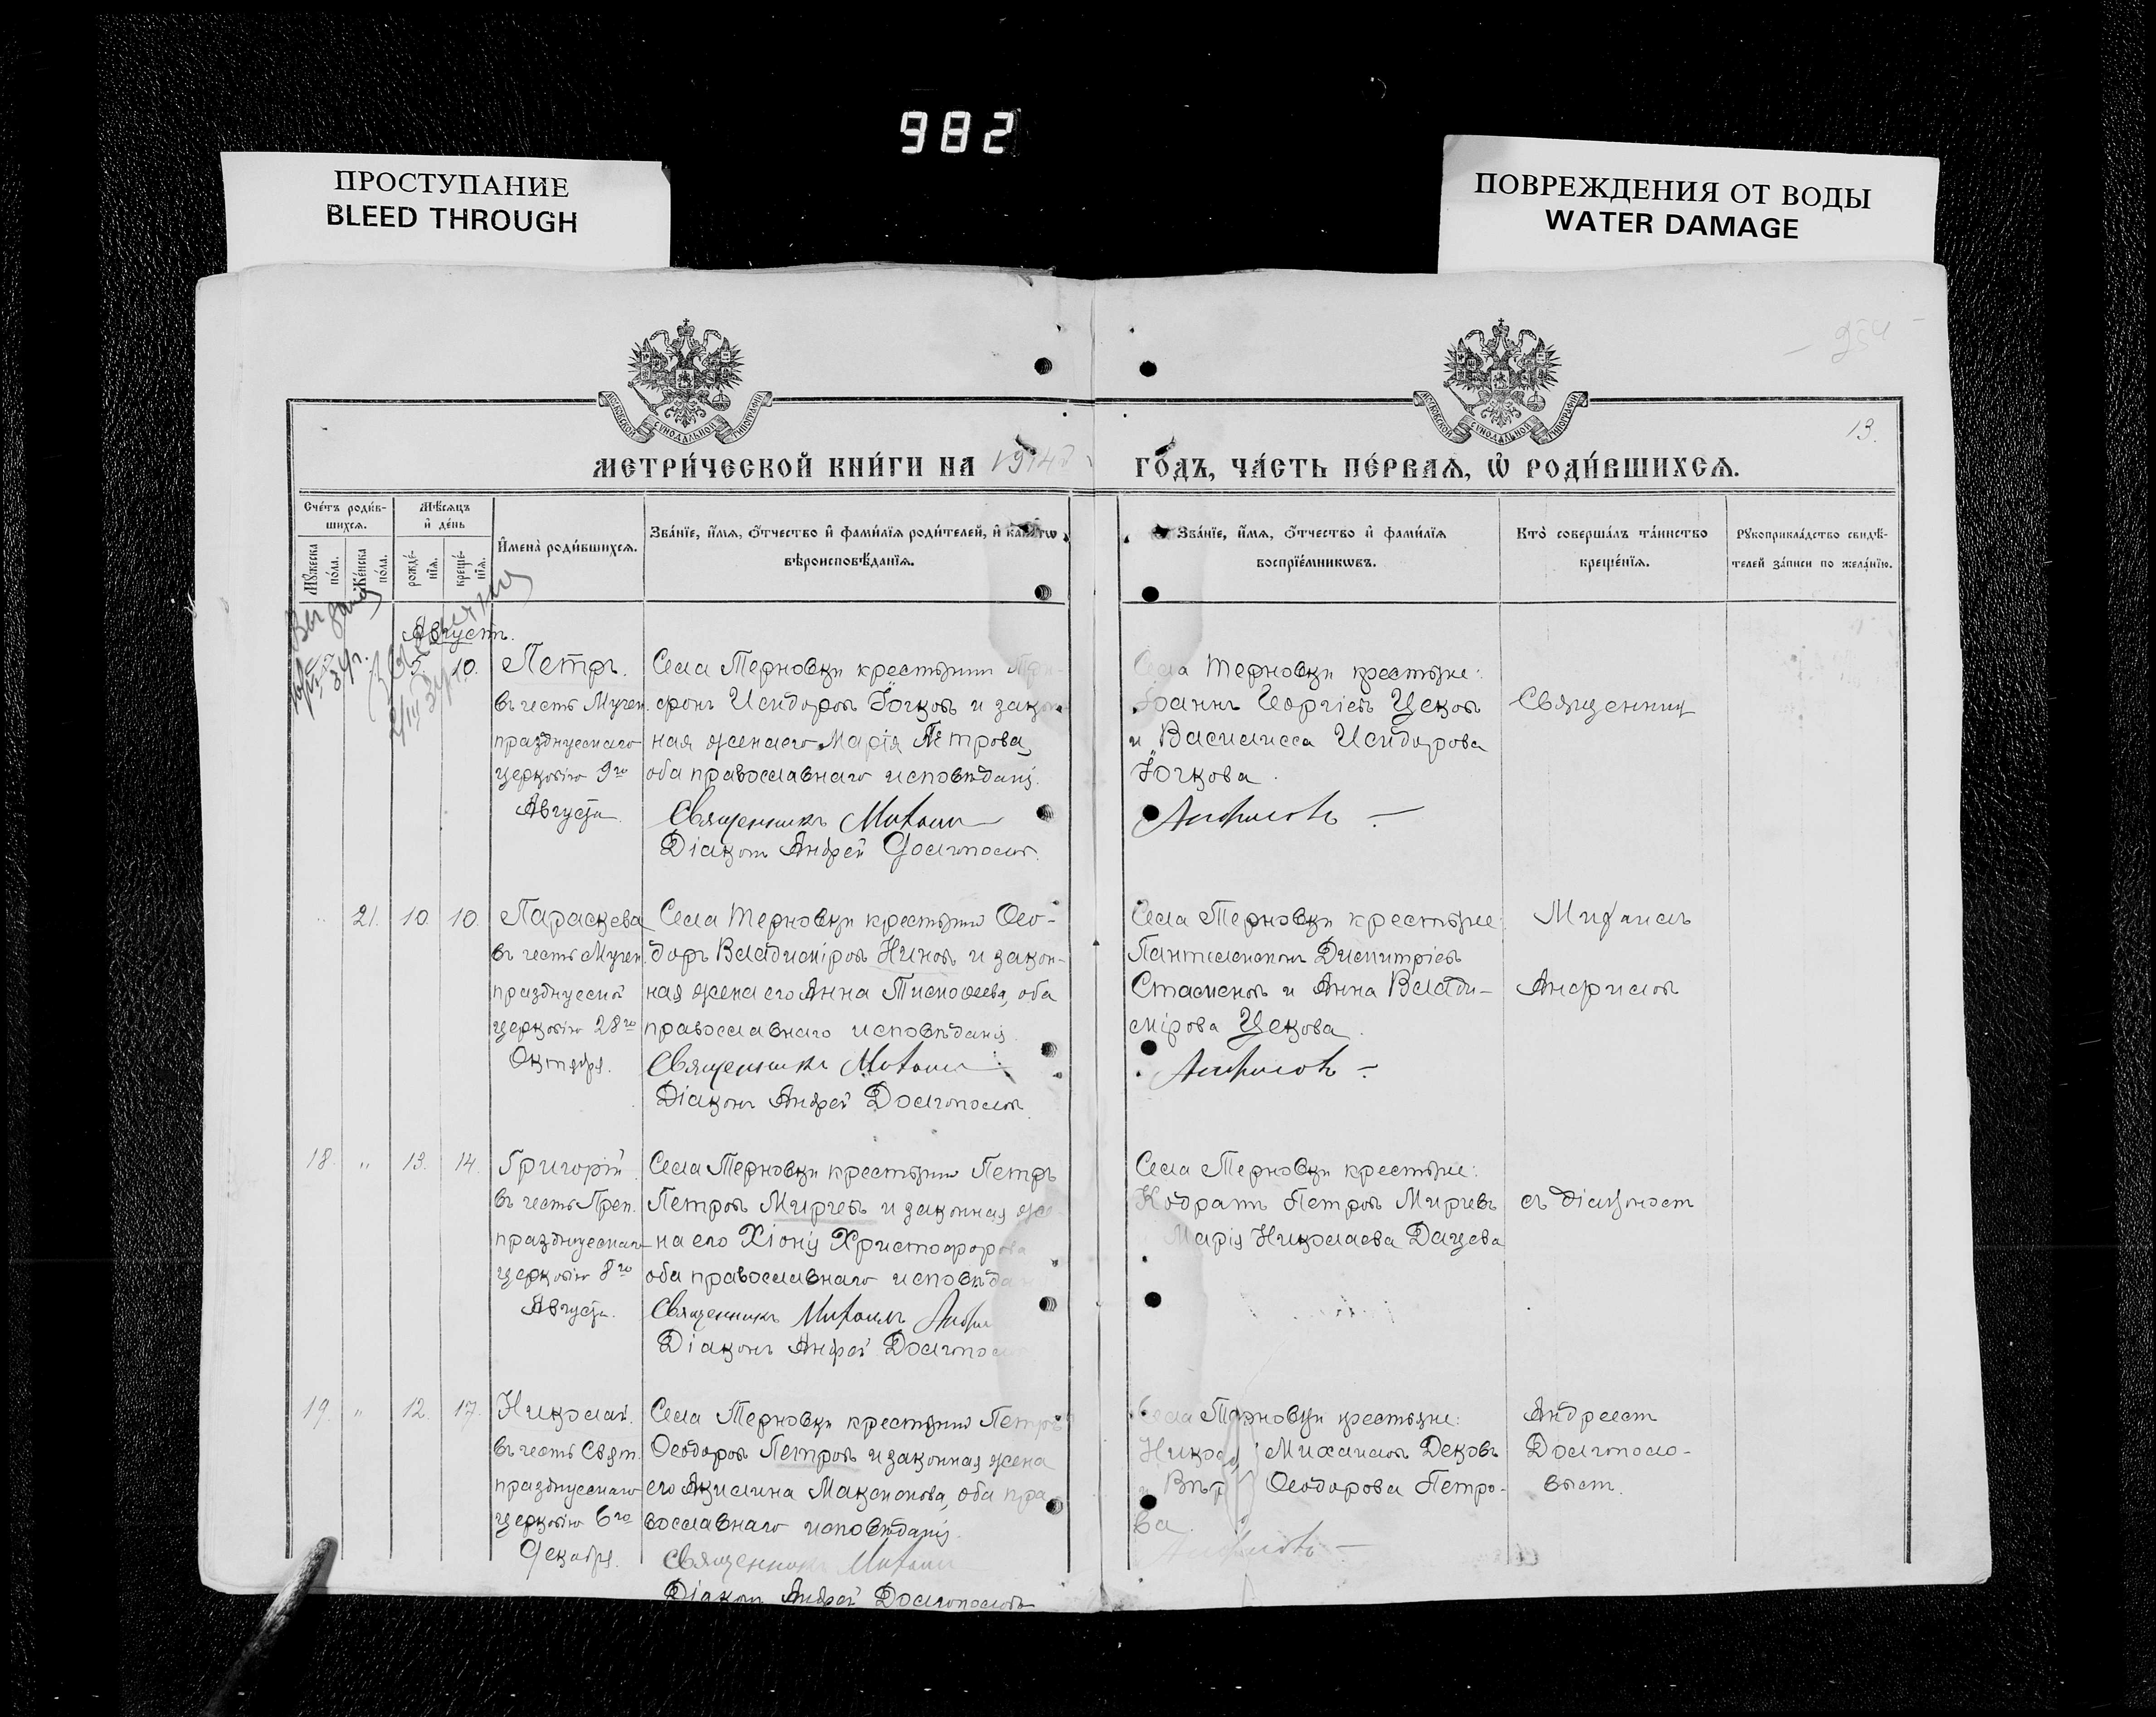 982
ПРОСТУПАНИЕ
BLEED THROUGH
ПОВРЕЖДЕНИЯ ОТ ВОДЫ
WATER DAMAGE
МОСКОВСКОЙ СѴНОДАЛЬНОЙ ТИПОГРАФІИ
МОСКОВСКОЙ СѴНОДАЛЬНОЙ ТИПОГРАФІИ
13.
МЕТРИ́ЧЕСКОЙ КНИ́ГИ НА 1914й
ГО́ДЪ, ЧА́СТЬ ПЕ́РВАѦ, Ѡ҆ РОДИ́ВШИХСѦ.
Сче́тъ роди́в-
шихсѧ.
Мѣ́сѧцъ
и҆ де́нь
Мꙋ́жеска
по́ла.
Же́нска
по́ла.
рожде́-
нїѧ.
креще́-
нїѧ.
И҆мена̀ роди́вшихсѧ.
Зва́нїе, и҆́мѧ, ѻ҆́тчество и҆ фами́лїѧ роди́телей, и҆
вѣроисповѣ́данїѧ.
Зва́нїе, и҆́мѧ, ѻ҆́тчество и҆ фами́лїѧ
воспрїе́мникѡвъ.
Кто̀ соверша́лъ та́инство
креще́нїѧ.
Рꙋкоприкла́дство свидѣ́-
телей за́писи по жела́нїю.
Августъ.
5. 10. Петръ.
въ честь Мучен.
празднуемаго
церковію 9го
Августа.
Села Терновки крестьянинъ
фонъ Исидоровъ Іочковъ и закон
ная жена его Марія Петрова,
оба православнаго исповѣданія.
Священникъ Михаилъ
Діаконъ Андрей Долгополовъ.
Села Терновки крестьяне:
Іоаннъ Георгіевъ Цековъ
и Василисса Исидорова
Іочкова.
Анфиловъ
Священник
21. 10. 10. Параскева
въ честь Мучен.
празднуемой
церковію 28го
Октября.
Села Терновки крестьянинъ Ѳео-
доръ Владиміровъ Ниновъ и закон-
ная жена его Анна Тимоѳеева, оба
православнаго исповѣданія.
Священникъ Михаилъ
Діаконъ Андрей Долгополовъ
Села Терновки крестьяне
Пантелеимонъ Димитріевъ
Стамновъ и Анна Влади-
мірова Цекова.
Анфиловъ
Михаилъ
Анфиловъ
18. " 13. 14. Григорій
въ честь Преп.
празднуемаго
церковію 8го
Августа.
Села Терновки крестьянинъ Петръ
Петровъ Мирчевъ и законная же
на его Хіонія Христофорова
оба православнаго исповѣдан
Священникъ Михаилъ Анфи
Діаконъ Андрей Долгопол
Села Терновки крестьяне:
Кодратъ Петровъ Мирчевъ
Марія Николаева Дацева
съ діакономъ
19. " 12. 17. Николай.
въ честь Свят.
празднуемаго
церковію 6го
Декабря.
Села Терновки крестьянинъ Петръ
Ѳеодоровъ Петровъ и законная жена
его Акилина Максимова, оба пра
вославнаго исповѣданія.
Священникъ Михаилъ
Діаконъ Андрей Долгополовъ
Села Терновки крестьяне:
Никол Михаиловъ Дековъ
и Вѣр Ѳеодорова Петро-
ва.
Анфиловъ
Андреемъ
Долгополо-
вымъ.